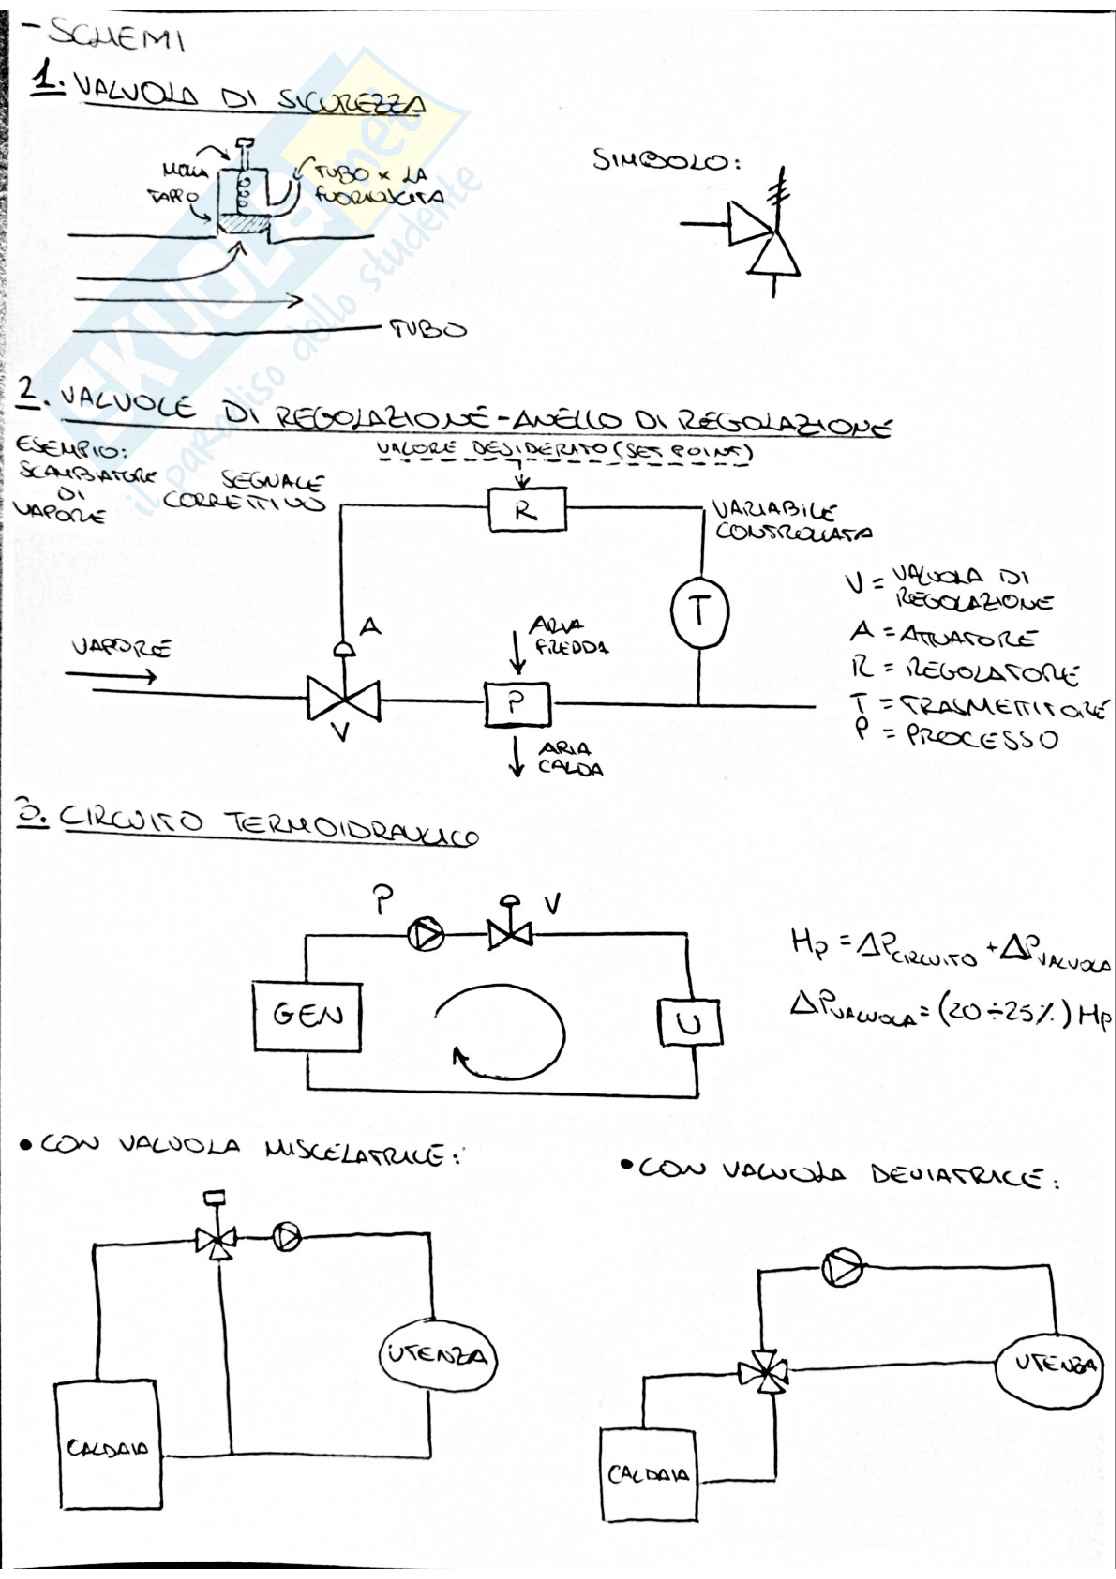 - SCHEMI
1. VALVOLA DI SICUREZZA
MOLLA
TAPPO
TUBO x LA
FUORIUSCITA
TUBO
SIMBOLO:
SKUOLA.net
il paradiso dello studente
2. VALVOLE DI REGOLAZIONE - ANELLO DI REGOLAZIONE
ESEMPIO:
SCAMBIATORE
DI
VAPORE
VALORE DESIDERATO (SET POINT)
SEGNALE
CORRETTIVO
R
VARIABILE
CONTROLLATA
T
A
VAPORE
V
ARIA
FREDDA
P
ARIA
CALDA
V = VALVOLA DI
REGOLAZIONE
A = ATTUATORE
R = REGOLATORE
T = TRASMETTITORE
P = PROCESSO
3. CIRCUITO TERMOIDRAULICO
P
V
GEN
U
Hp = ΔPCIRCUITO + ΔPVALVOLA
ΔPVALVOLA = (20÷25%) Hp
• CON VALVOLA MISCELATRICE:
UTENZA
CALDAIA
• CON VALVOLA DEVIATRICE:
UTENZA
CALDAIA